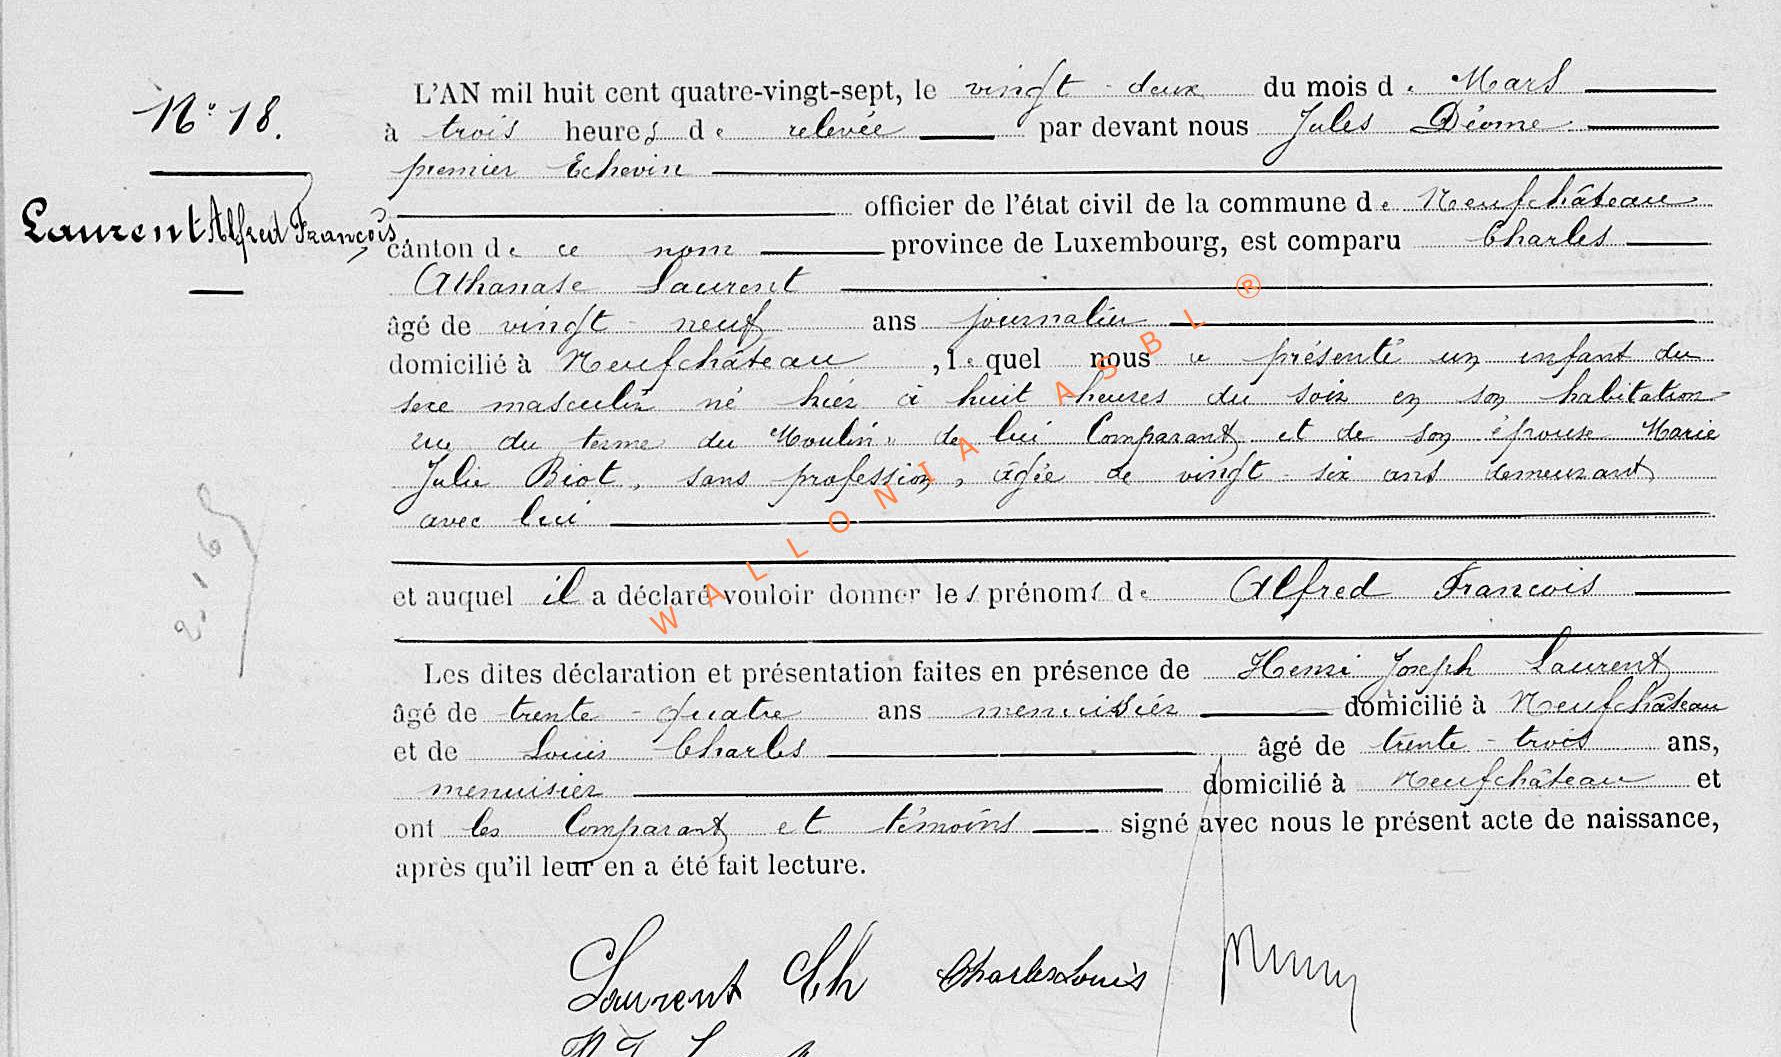 N° 18.
Laurent Alfred François,
L'AN mil huit cent quatre-vingt-sept, le vingt-deux du mois de Mars
à trois heures de relevée par devant nous Jules Déome
premier Echevin
officier de l'état civil de la commune de Neufchâteau
canton de ce nom province de Luxembourg, est comparu Charles
Athanase Laurent
âgé de vingt-neuf ans journalier
domicilié à Neufchâteau, lequel nous a présenté un enfant du
sexe masculin né hier à huit heures du soir en son habitation
rue du terme du Moulin" de lui Comparant et de son épouse Marie
Julie Biot, sans profession, âgée de vingt-six ans demeurant
avec lui
et auquel il a déclaré vouloir donner les prénoms de Alfred Francois
Les dites déclaration et présentation faites en présence de Henri Joseph Laurent
âgé de trente-quatre ans menuisier domicilié à Neufchâteau
et de Louis Charles âgé de trente-trois ans,
menuisier domicilié à Neufchâteau et
ont les Comparant et témoins signé avec nous le présent acte de naissance,
après qu'il leur en a été fait lecture.
Laurent Ch Charles Louis
WALLONIA ASBL ®